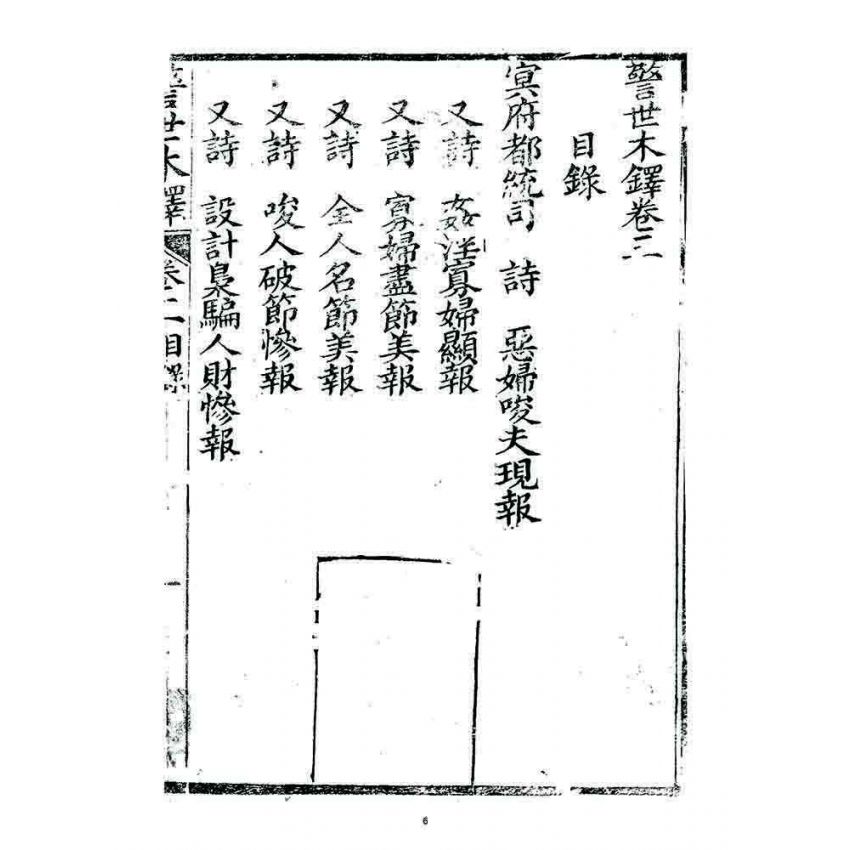 警世木鐸卷三
目錄
冥府都統司 詩 惡婦唆夫現報
又詩 姦淫寡婦顯報
又詩 寡婦盡節美報
又詩 全人名節美報
又詩 唆人破節慘報
又詩 設計梟騙人財慘報
警世木鐸 卷二目錄 一
6